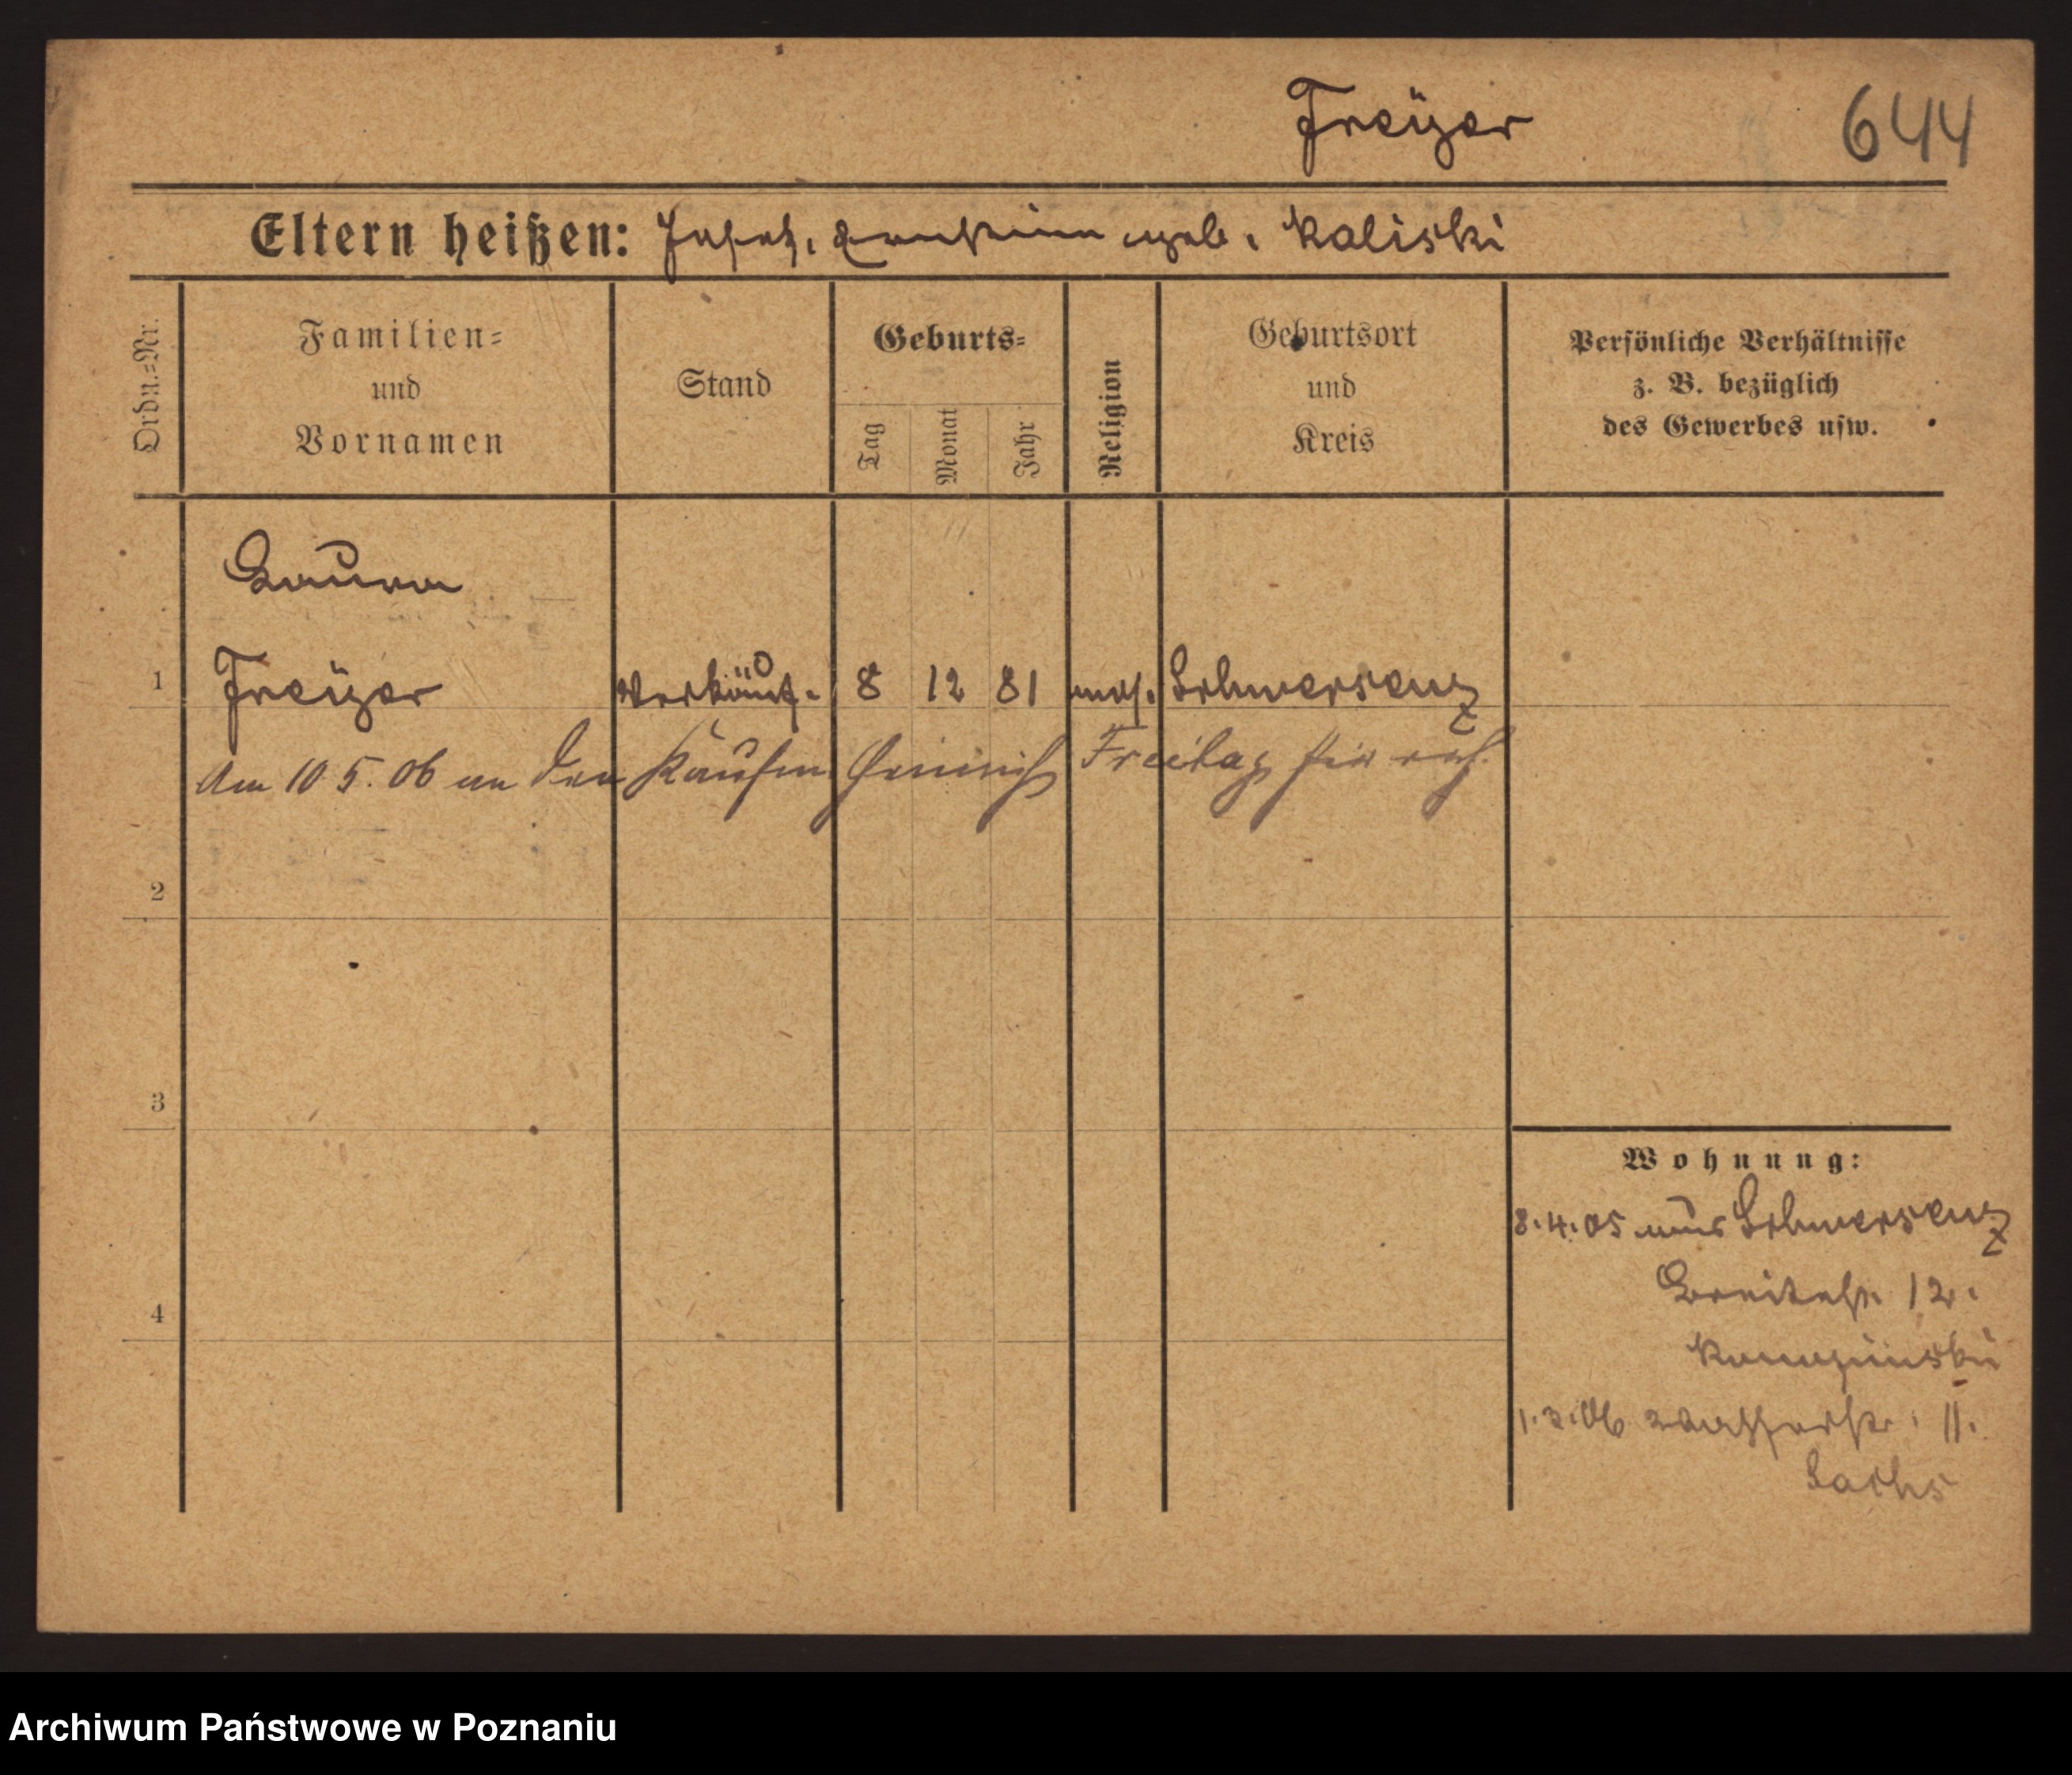 Freÿer
644
Eltern heißen: Josef, Ernstine geb. Kaliski
Ordn.-Nr.
Familien- und Vornamen
Stand
Geburts-
Tag
Monat
Jahr
Religion
Geburtsort und Kreis
Persönliche Verhältnisse z. B. bezüglich des Gewerbes usw.
Laura
1 Freÿer Verkäuf. 8 12 81 mos. Schwersenz
Am 10.5.06 an den Kaufm. Heinrich Freitag hier verh.
2
3
4
Wohnung:
8.4.05 aus Schwersenz
Breitestr. 12.
1.3.06 Wasserstr. 11.
Sachs
Archiwum Państwowe w Poznaniu